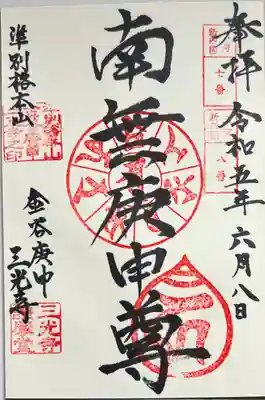 奉拝 令和五年 六月八日
南無庚申尊
準別格本山
金谷庚申
三光寺
七番
八番
三光寺